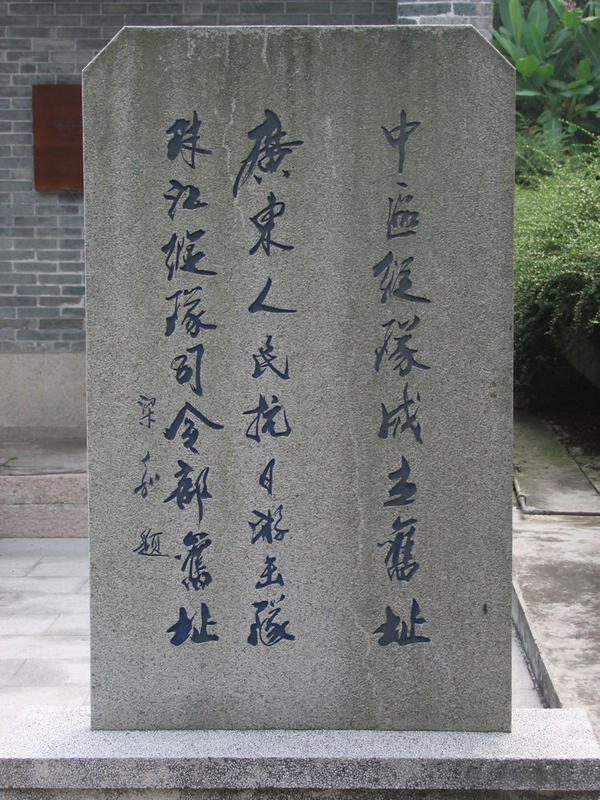 中區縱隊成立舊址
廣東人民抗日游击隊
珠江縱隊司令部舊址
梁嘉題